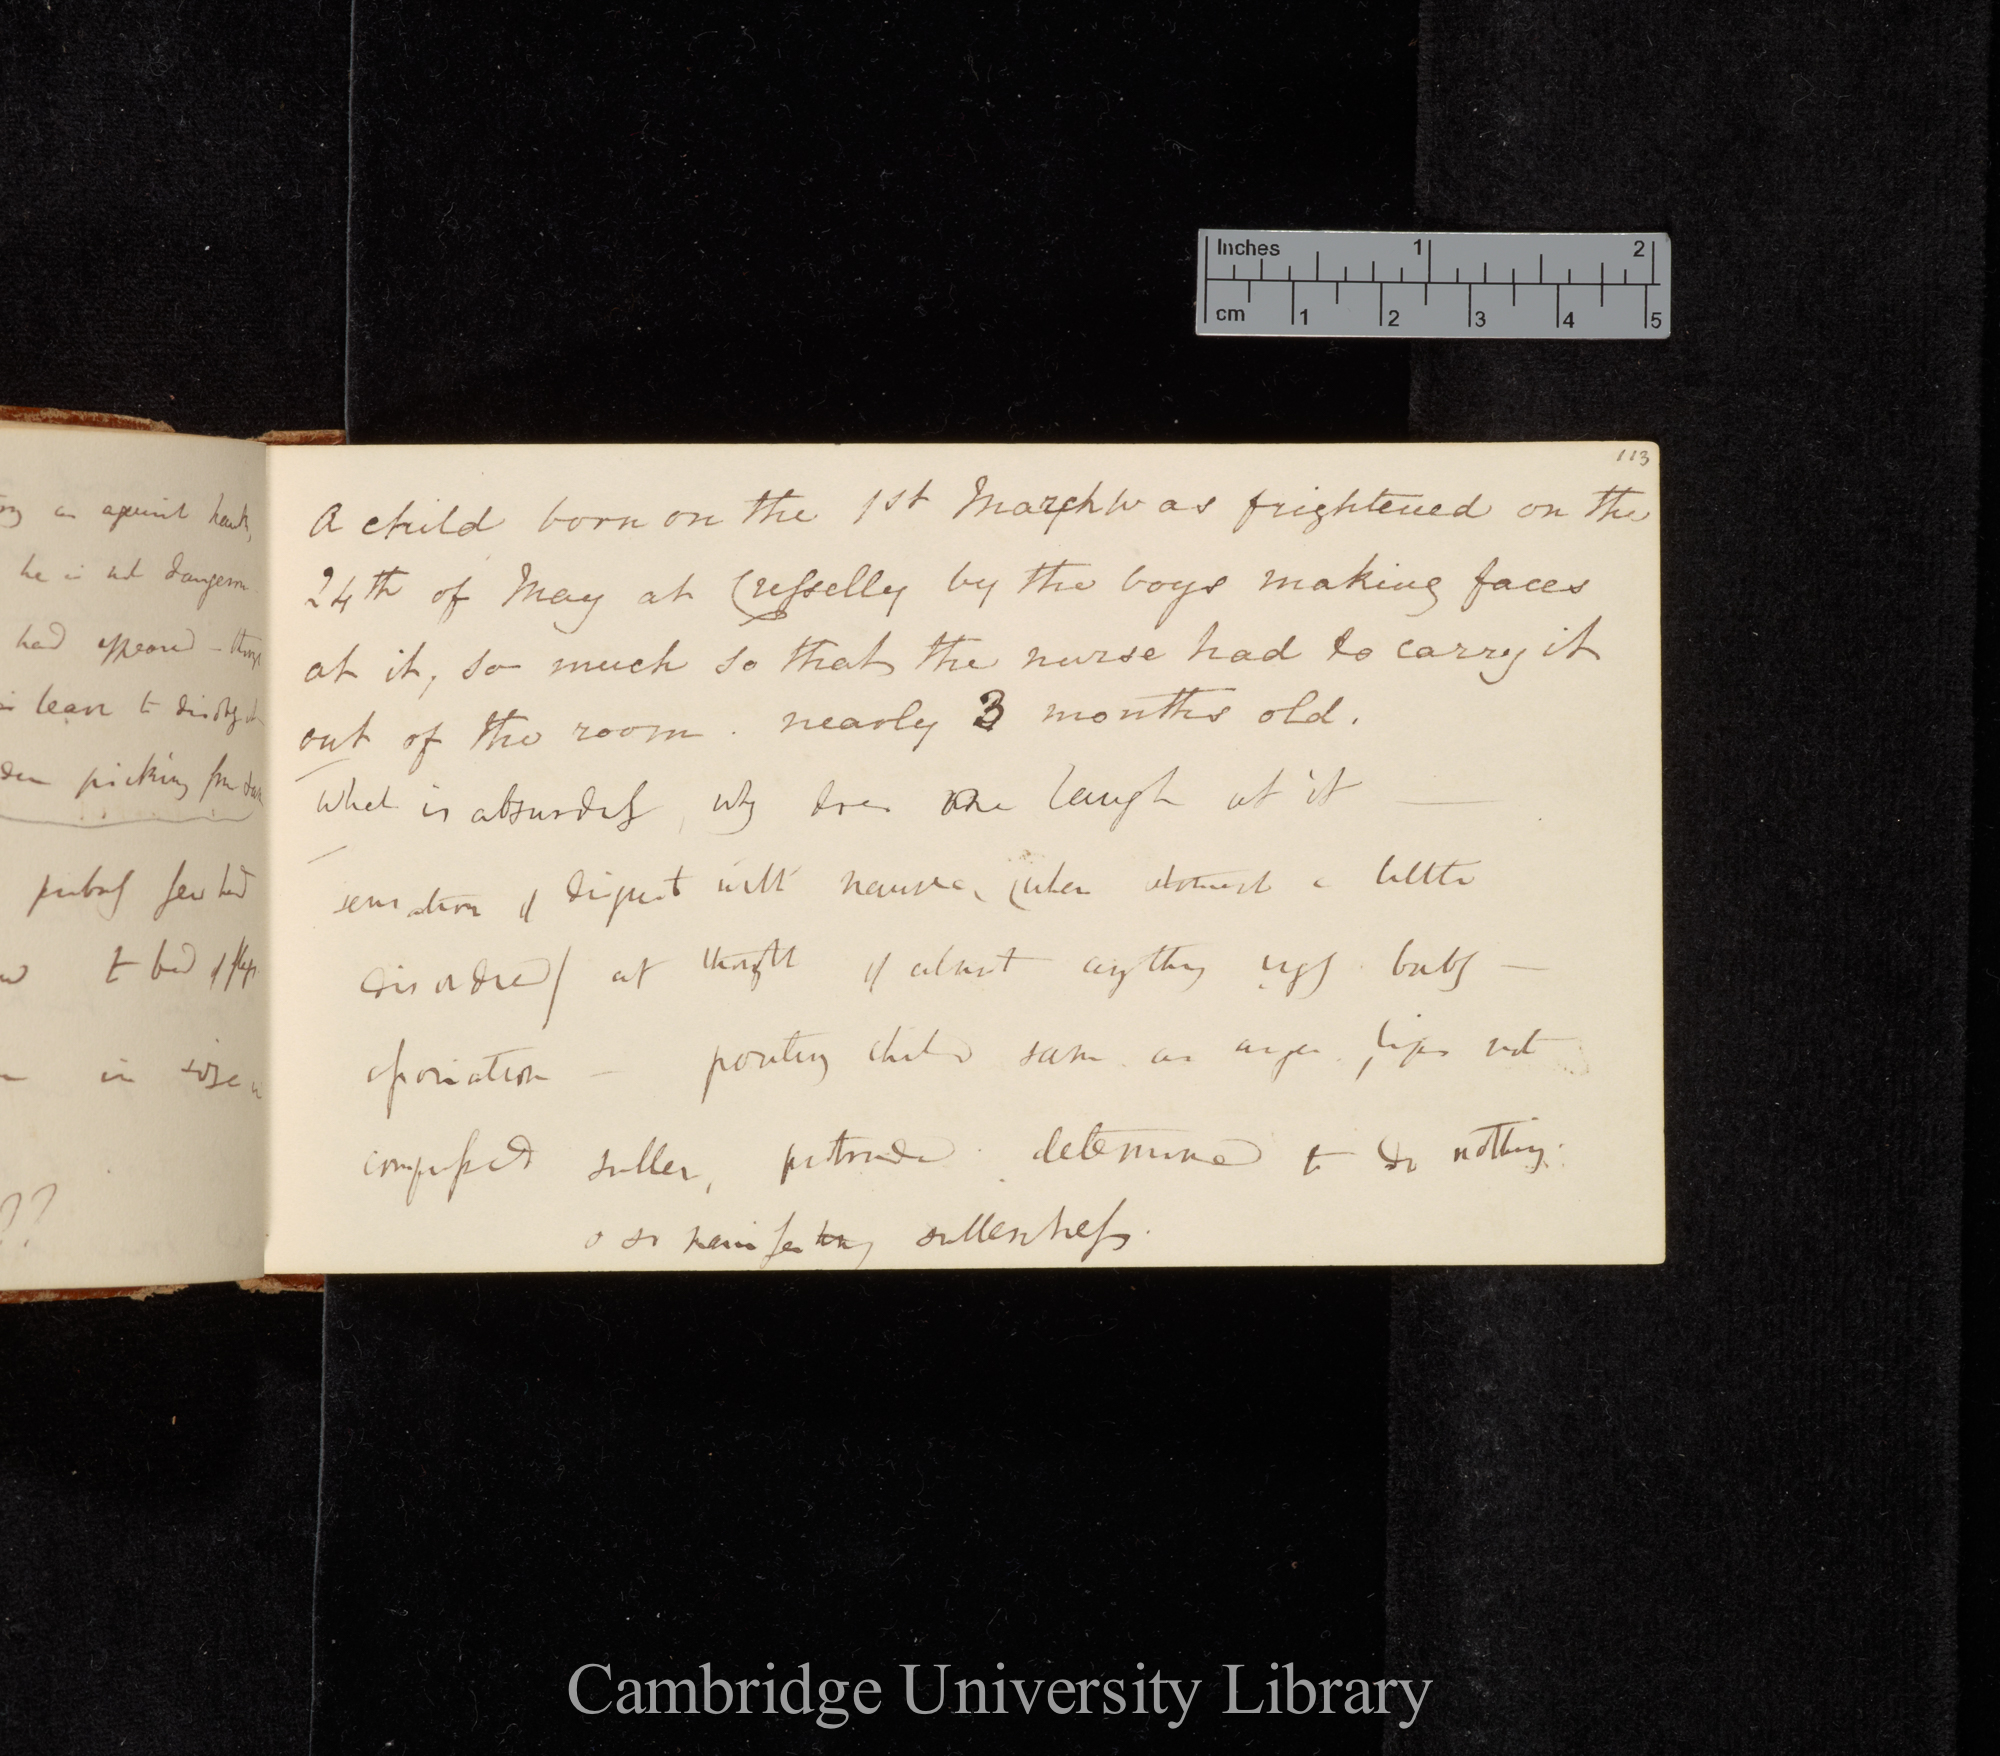 Inches 1 2
cm 1 2 3 4 5
113
A child born on the 1st March was frightened on the
24th of May at Cresselly by the boys making faces
at it, so much so that the nurse had to carry it
out of the room. nearly 3 months old.
What is absurdity, why does one laugh at it —
sensation of disgust with nausea, (when stomach a little
disordered) at thought of almost anything ugly baby —
association — pouting child same as anger, lips not
compressed sullen, protruded. determined to do nothing.
so manifesting sullenness.
as against hawks,
he is not dangerous
had appeared —
learn to
picking
probably
to bed
in size
??
Cambridge University Library